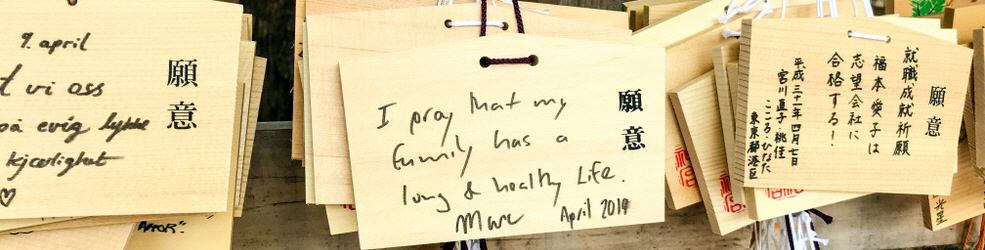 9. april
t vi oss
på evig lykke
kjærlighet
願意
I pray that my
family has a
long & healthy Life.
Marc April 2019
願意
願意
就職成就祈願
福本愛子は
志望会社に
合格する!
平成三十一年四月七日
宮川直子・桃佳
こころ・ひなた
東京都港区